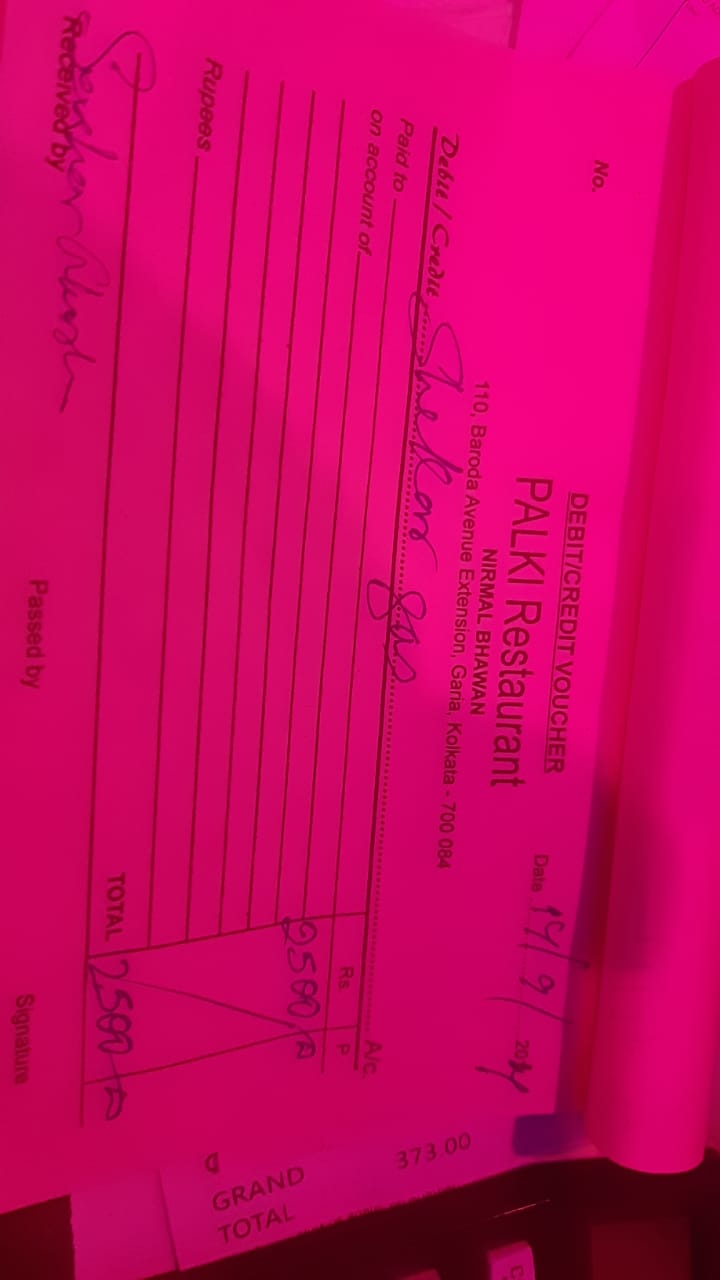 No.
DEBIT/CREDIT VOUCHER
PALKI Restaurant
NIRMAL BHAWAN
110, Baroda Avenue Extension, Garia, Kolkata - 700 084
Date 14/9/2024
Debit / Credit Shekar gas A/c.
Paid to
on account of
Rs. P.
2500/-
Rupees
TOTAL 2500/-
Received by Passed by Signature
373.00
GRAND
TOTAL